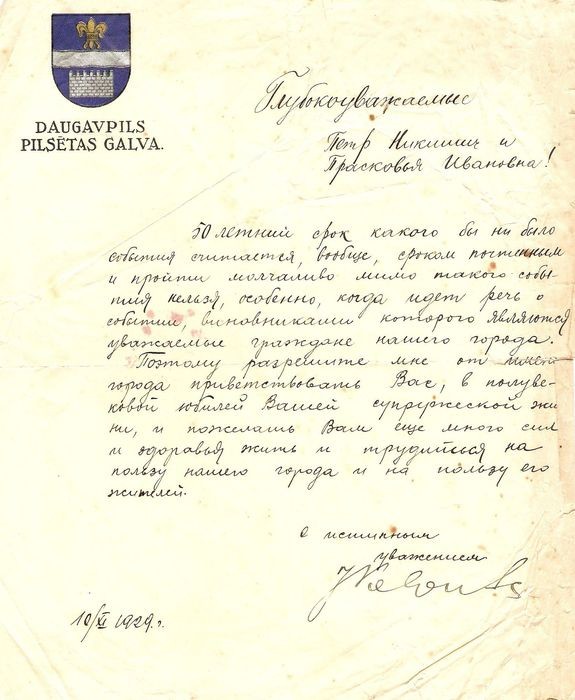 DAUGAVPILS
PILSĒTAS GALVA.
Глубокоуважаемые
Петр Никитич и
Прасковья Ивановна!
50 летний срок какого бы ни было
события считается, вообще, сроком почтенным
и пройти молчаливо мимо такого собы-
тия нельзя, особенно, когда идет речь о
событии, виновниками которого являются
уважаемые граждане нашего города.
Поэтому разрешите мне от имени
города приветствовать Вас, в полуве-
ковой юбилей Вашей супружеской жиз
ни, и пожелать Вам еще много сил
и здоровья жить и трудиться на
пользу нашего города и на пользу его
жителей.
С истинным
уважением
10/XI 1929 г.